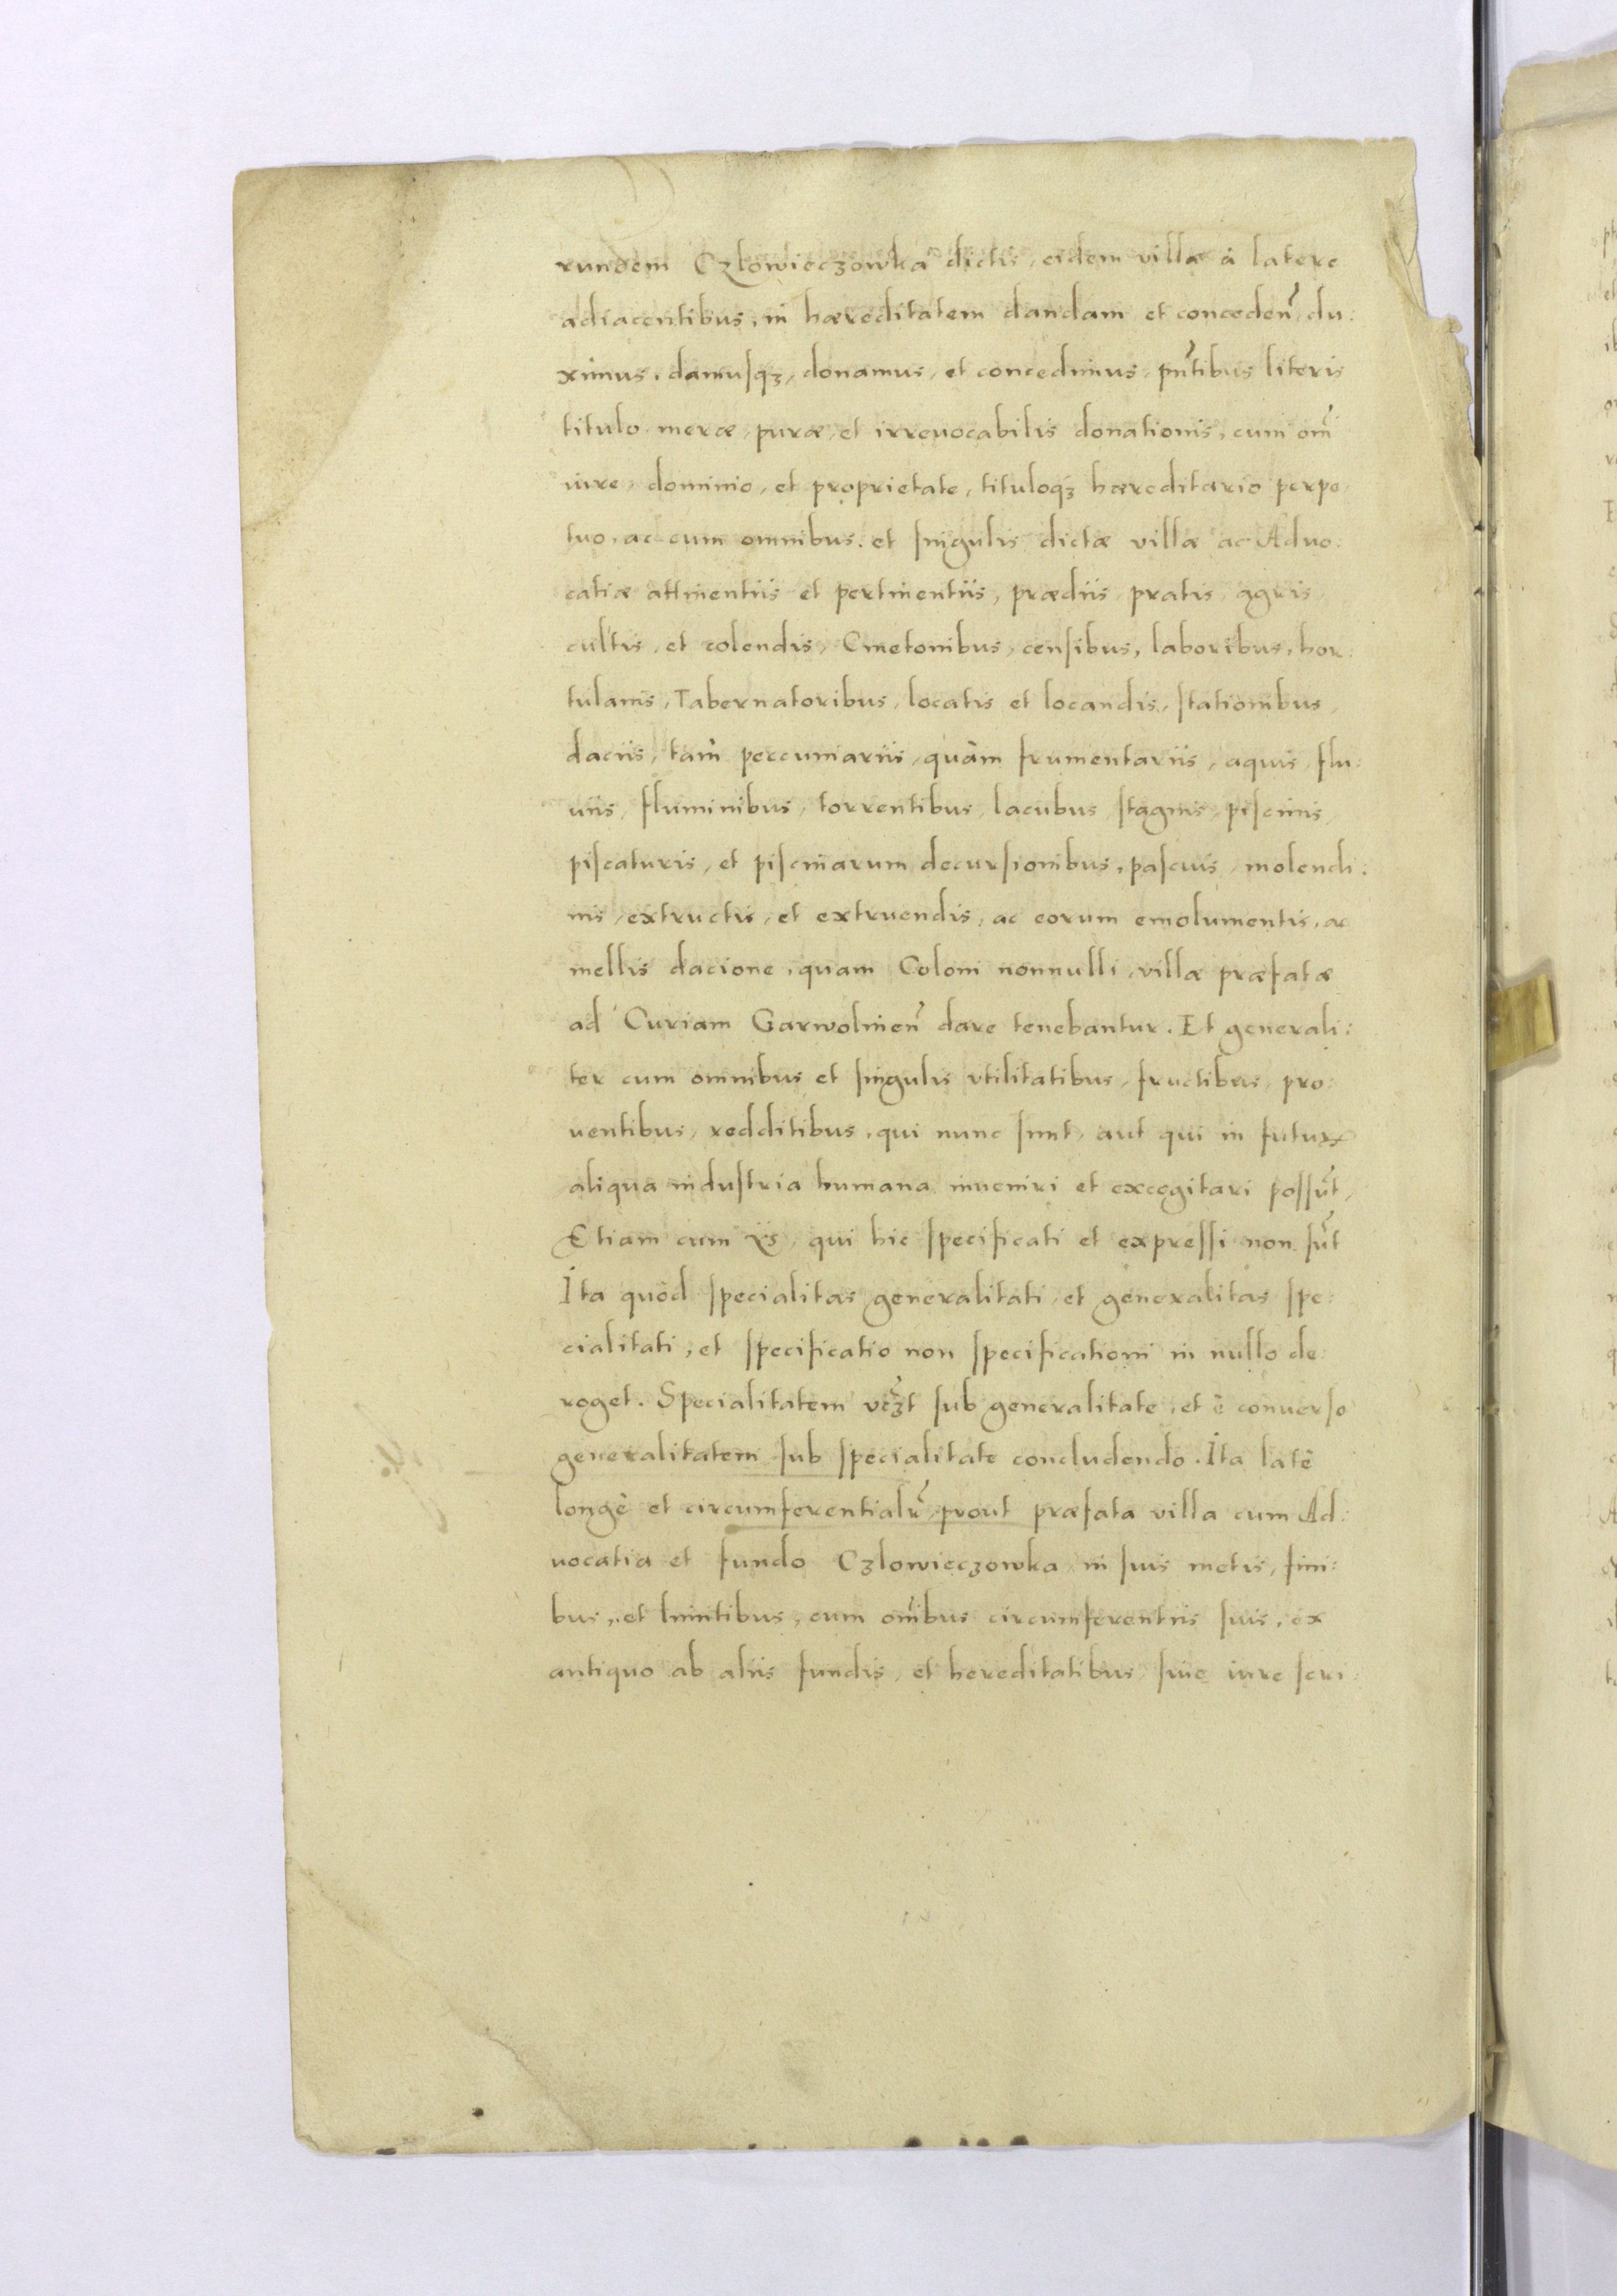 rundem Czlowieczowka dictis, eidem villæ à latere
adiacentibus, in hæreditatem dandam et conceden̄ du:
ximus, damusqȝ, donamus, et concedimus, pn̄tibus literis
titulo meræ, puræ, et irreuocabilis donationis, cum om̄
iure, dominio, et proprietate, tituloqȝ hæreditario perpe
tuo, ac cum omnibus, et singulis dictæ villæ ac Aduo:
catiæ attinentiis et pertinentiis, prædiis, pratis, agris,
cultis, et colendis, Cmetonibus, censibus, laboribus, hor:
tulanis, Tabernatoribus, locatis et locandis, stationibus,
daciis, tam̀ peccuniariis, quàm frumentariis, aquis, flu:
uiis, fluminibus, torrentibus, lacubus, stagnis, piscinis,
piscaturis, et piscinarum decursionibus, pascuis, molendi:
nis, extructis, et extruendis, ac eorum emolumentis, ac
mellis dacione, quam Coloni nonnulli, villæ præfatæ
ad Curiam Garwolinen̄ dare tenebantur. Et generali:
ter cum omnibus et singulis vtilitatibus, fructibus, pro:
uentibus, redditibus, qui nunc sunt, aut qui in futurū
aliqua industria humana inueniri et excogitari possūt,
Etiam cum ijs, qui hic specificati et expressi non sūt
Ita quòd specialitas generalitati, et generalitas spe:
cialitati, et specificatio non specificationi in nullo de:
roget. Specialitatem vcȝt sub generalitate, et è conuerso
generalitatem sub specialitate concludendo. Ita latè
longè et circumferentialr̄, prout præfata villa cum Ad:
uocatia et fundo Czlowieczowka, in suis metis, fini:
bus, et limitibus, cum om̄ibus circumferentiis suis, ex
antiquo ab aliis fundis, et hereditatibus, siue iure scri: